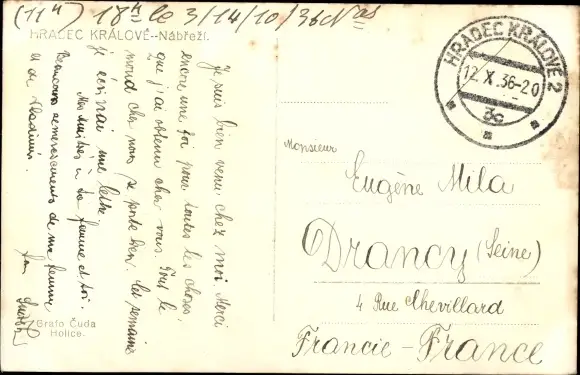 (11ʰ) 18ʰ le 3/14/10/36
HRADEC KRÁLOVÉ--Nábřeží.
Je suis bien venu chez moi. Merci
encore une foi pour toutes les choses,
que j'ai obtenu chez vous. Tout le
mond chez nous se porte bien. Cet semaine
je écrirai une lettre.
Mes amitiés à ta femme et toi.
de ma femme
et de Vladimir.
Grafo Čuda
Holice.
HRADEC KRÁLOVÉ 2
12.X.36-20
3c
Monsieur
Eugène Mila
Drancy (Seine)
4 Rue Chevillard
Francie - France